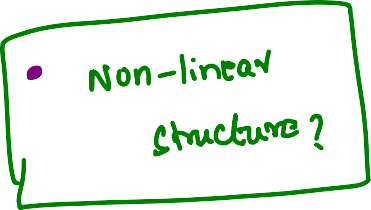 Non-linear
structure?